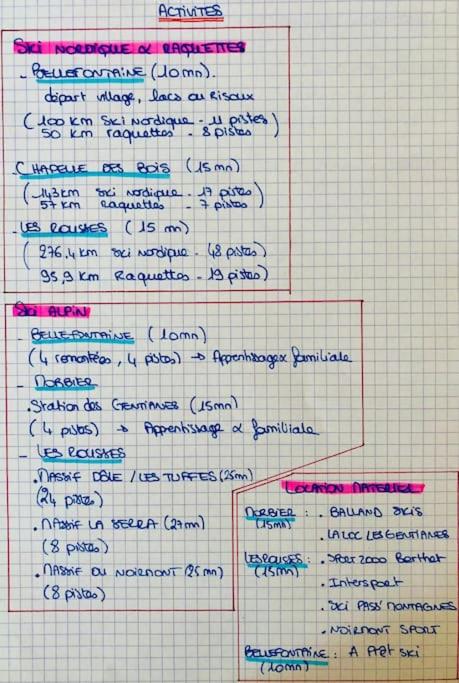 ACTIVITES
SKI NORDIQUE & RAQUETTES
- BELLEFONTAINE (10mn).
départ village, lacs ou Risoux
(100 km Ski Nordique - 11 pistes
50 km raquettes - 8 pistes)
. CHAPELLE DES BOIS (15mn)
(143km ski nordique - 17 pistes
57km Raquettes - 7 pistes)
- LES ROUSSES (15 mn)
(276,4km ski nordique - 48 pistes)
95,9 km Raquettes - 19 pistes)
SKI ALPIN
- BELLEFONTAINE (10mn)
(4 remontées, 4 pistes) → Apprentissage & familiale
- MORBIER
. Station des GENTIANES (15mn)
(4 pistes) → Apprentissage & familiale
- LES ROUSSES
. MASSIF DÔLE / LES TUFFES (25mn)
(24 pistes)
. MASSIF LA SERRA (27mn)
(8 pistes)
. MASSIF DU NOIRMONT (25mn)
(8 pistes)
LOCATION MATERIEL
MORBIER : . BALLAND SKIS
(15mn)
. LA LOC LES GENTIANES
LES ROUSSES : . SPORT 2000 Berthet
(15mn) . Intersport
. SKI PASS' MONTAGNES
. NOIRMONT SPORT
BELLEFONTAINE : A Prêt Ski
(10mn)